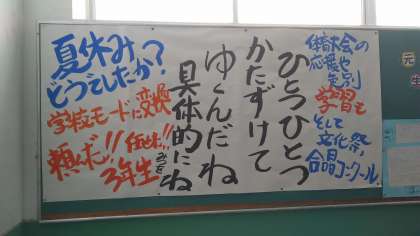 夏休み
どうでしたか?
学校モードに変換
頼んだ!!
3年生
ひとつひとつ
かたずけて
ゆくんだね
具体的にね
体育大会の
応援や
学習も
そして
文化祭、
合唱コンクール